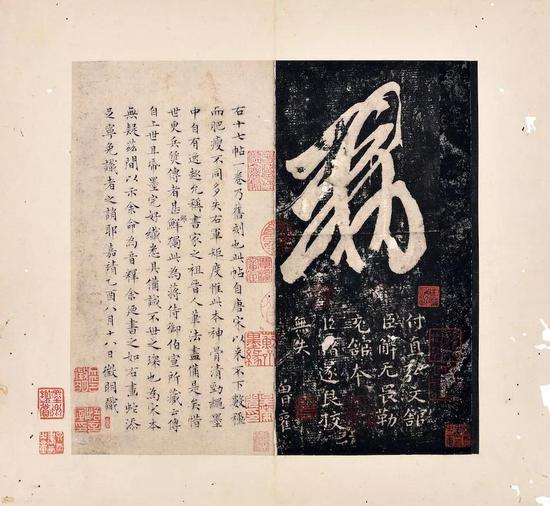 敕
付直弘文館
臣解无畏勒
充館本
臣褚遂良校
無失
右十七帖一卷乃舊刻也此帖自唐宋以來不下數種
而肥瘦不同多失右軍矩度惟此本神骨清勁繩墨
中自有逸趣允稱書家之祖晉人筆法盡備是矣惜
世更兵燹傳者甚鮮獨此為蔣侍御伯宣所藏云傳
自上世且帋墨完好纖悉具備誠不世之琛也為宋本
無疑茲間以示余命為音釋余遂書之如右畫蛇添
足寧免識者之誚耶嘉靖乙酉八月十八日徵明識